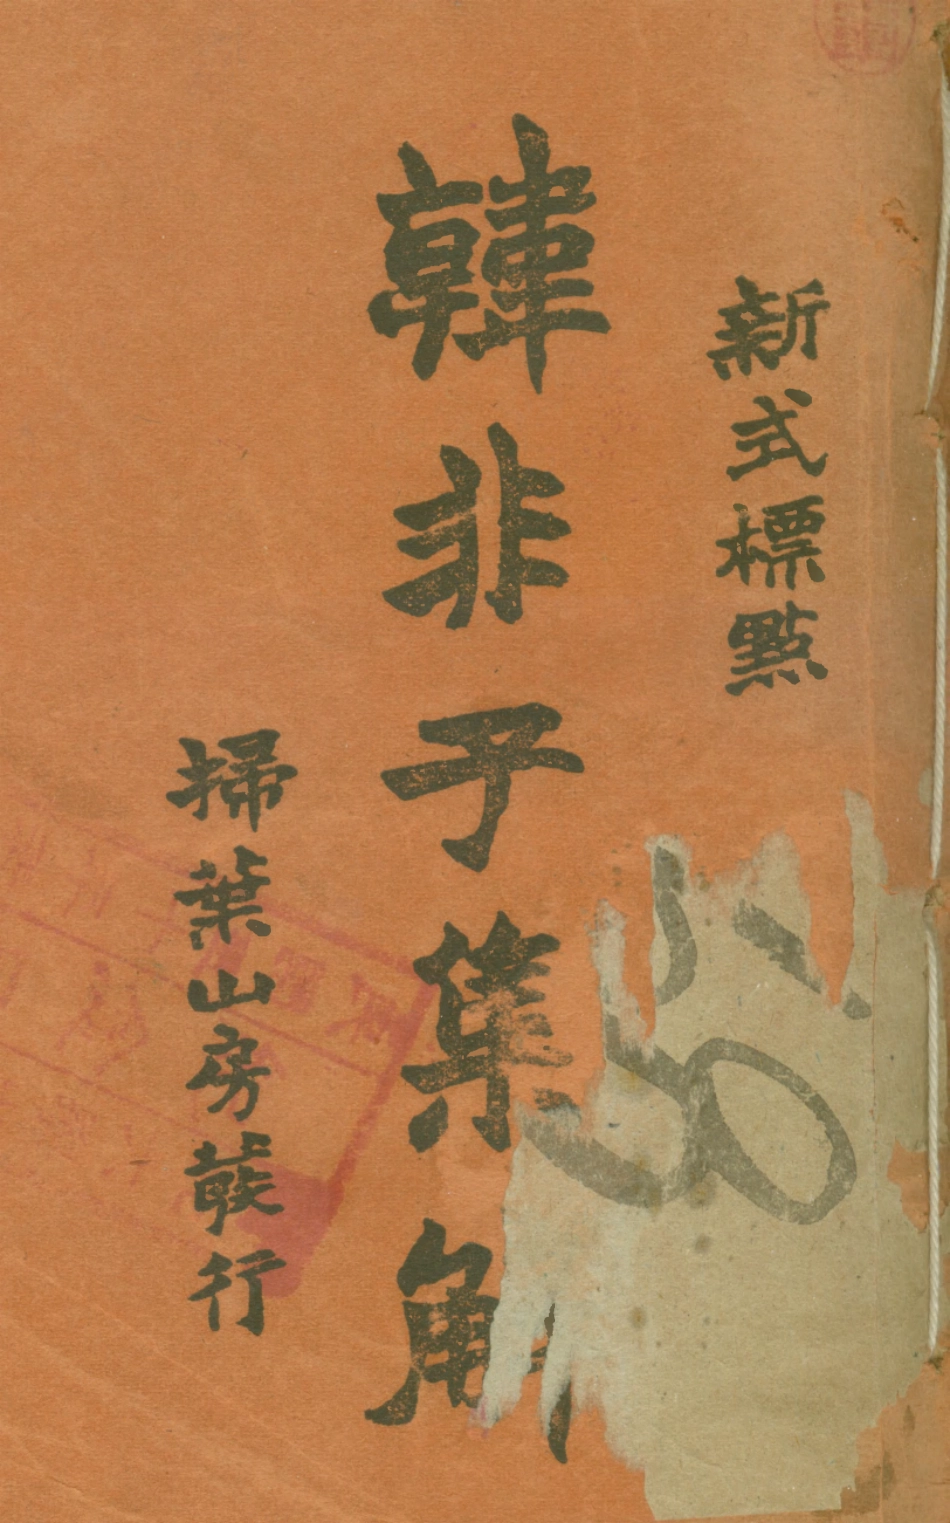 新式標點
韓非子集解
掃葉山房發行